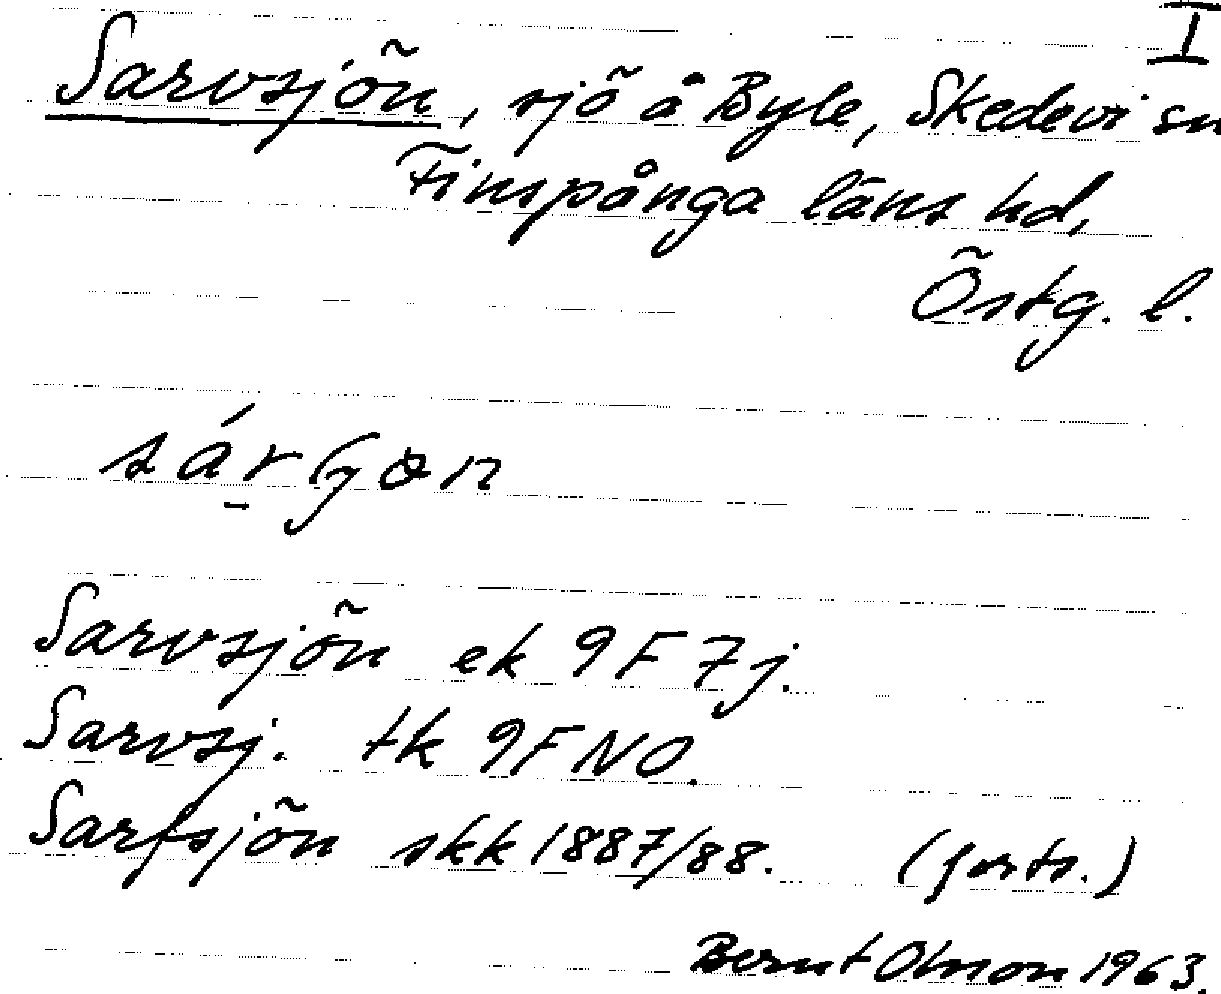 I
Sarvsjön, sjö å Byle, Skedevi sn
Finspånga läns hd,
Östg. l.
Sarvsjön ek 9F 7j.
Sarvsj. tk 9F NO.
Sarfsjön skk 1887/88. (forts.)
Bernt Olsson 1963.